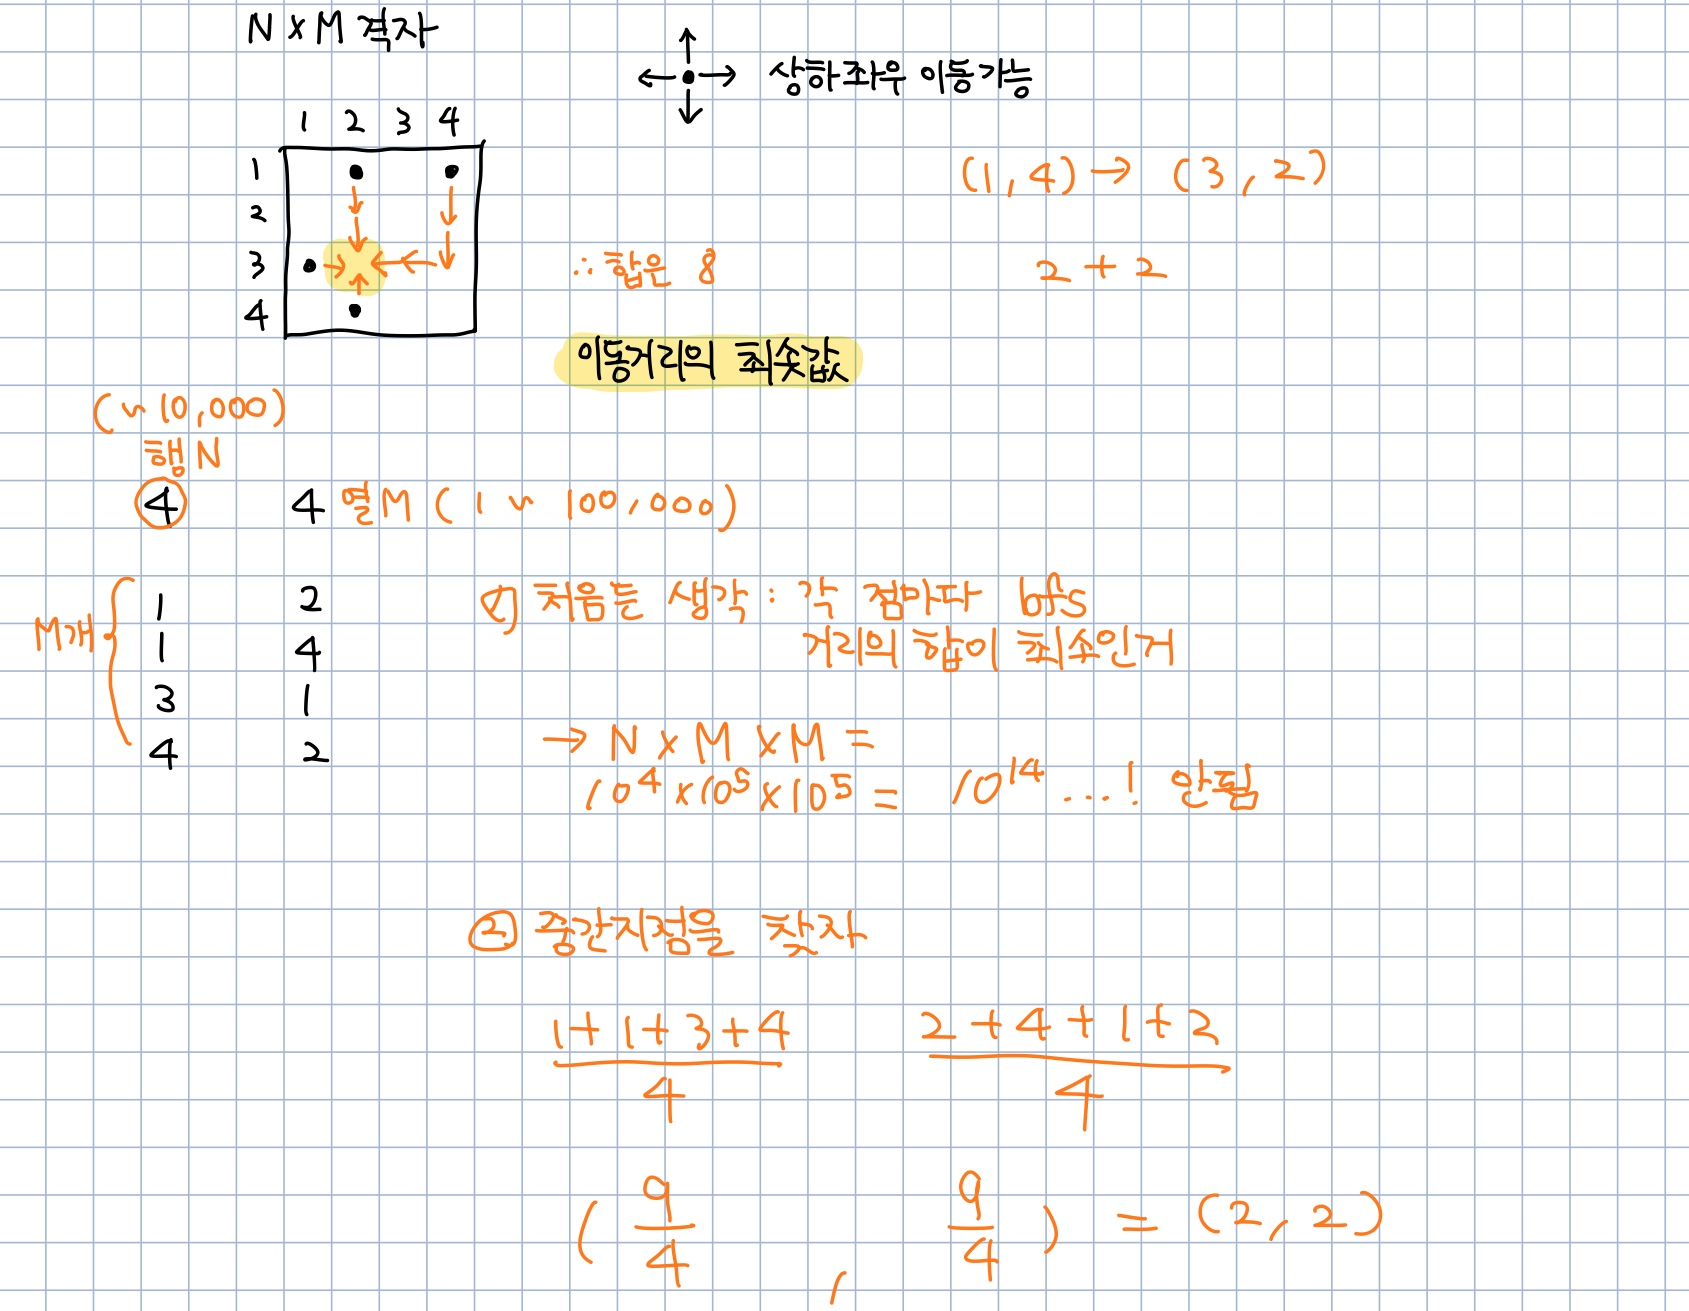 N x M 격자
상하좌우 이동가능
1 2 3 4
1
2
3
4
(1, 4) → (3, 2)
2 + 2
∴ 합은 8
이동거리의 최솟값
(~10,000)
행 N
4 4 열 M ( 1 ~ 100,000)
M개
1 2
1 4
3 1
4 2
① 처음든 생각 : 각 점마다 bfs
거리의 합이 최소인거
→ N x M x M =
10⁴ x 10⁵ x 10⁵ = 10¹⁴ ...! 안됨
② 중간지점을 찾자
1+1+3+4 2+4+1+2
4 4
( 9/4 , 9/4 ) = (2, 2)